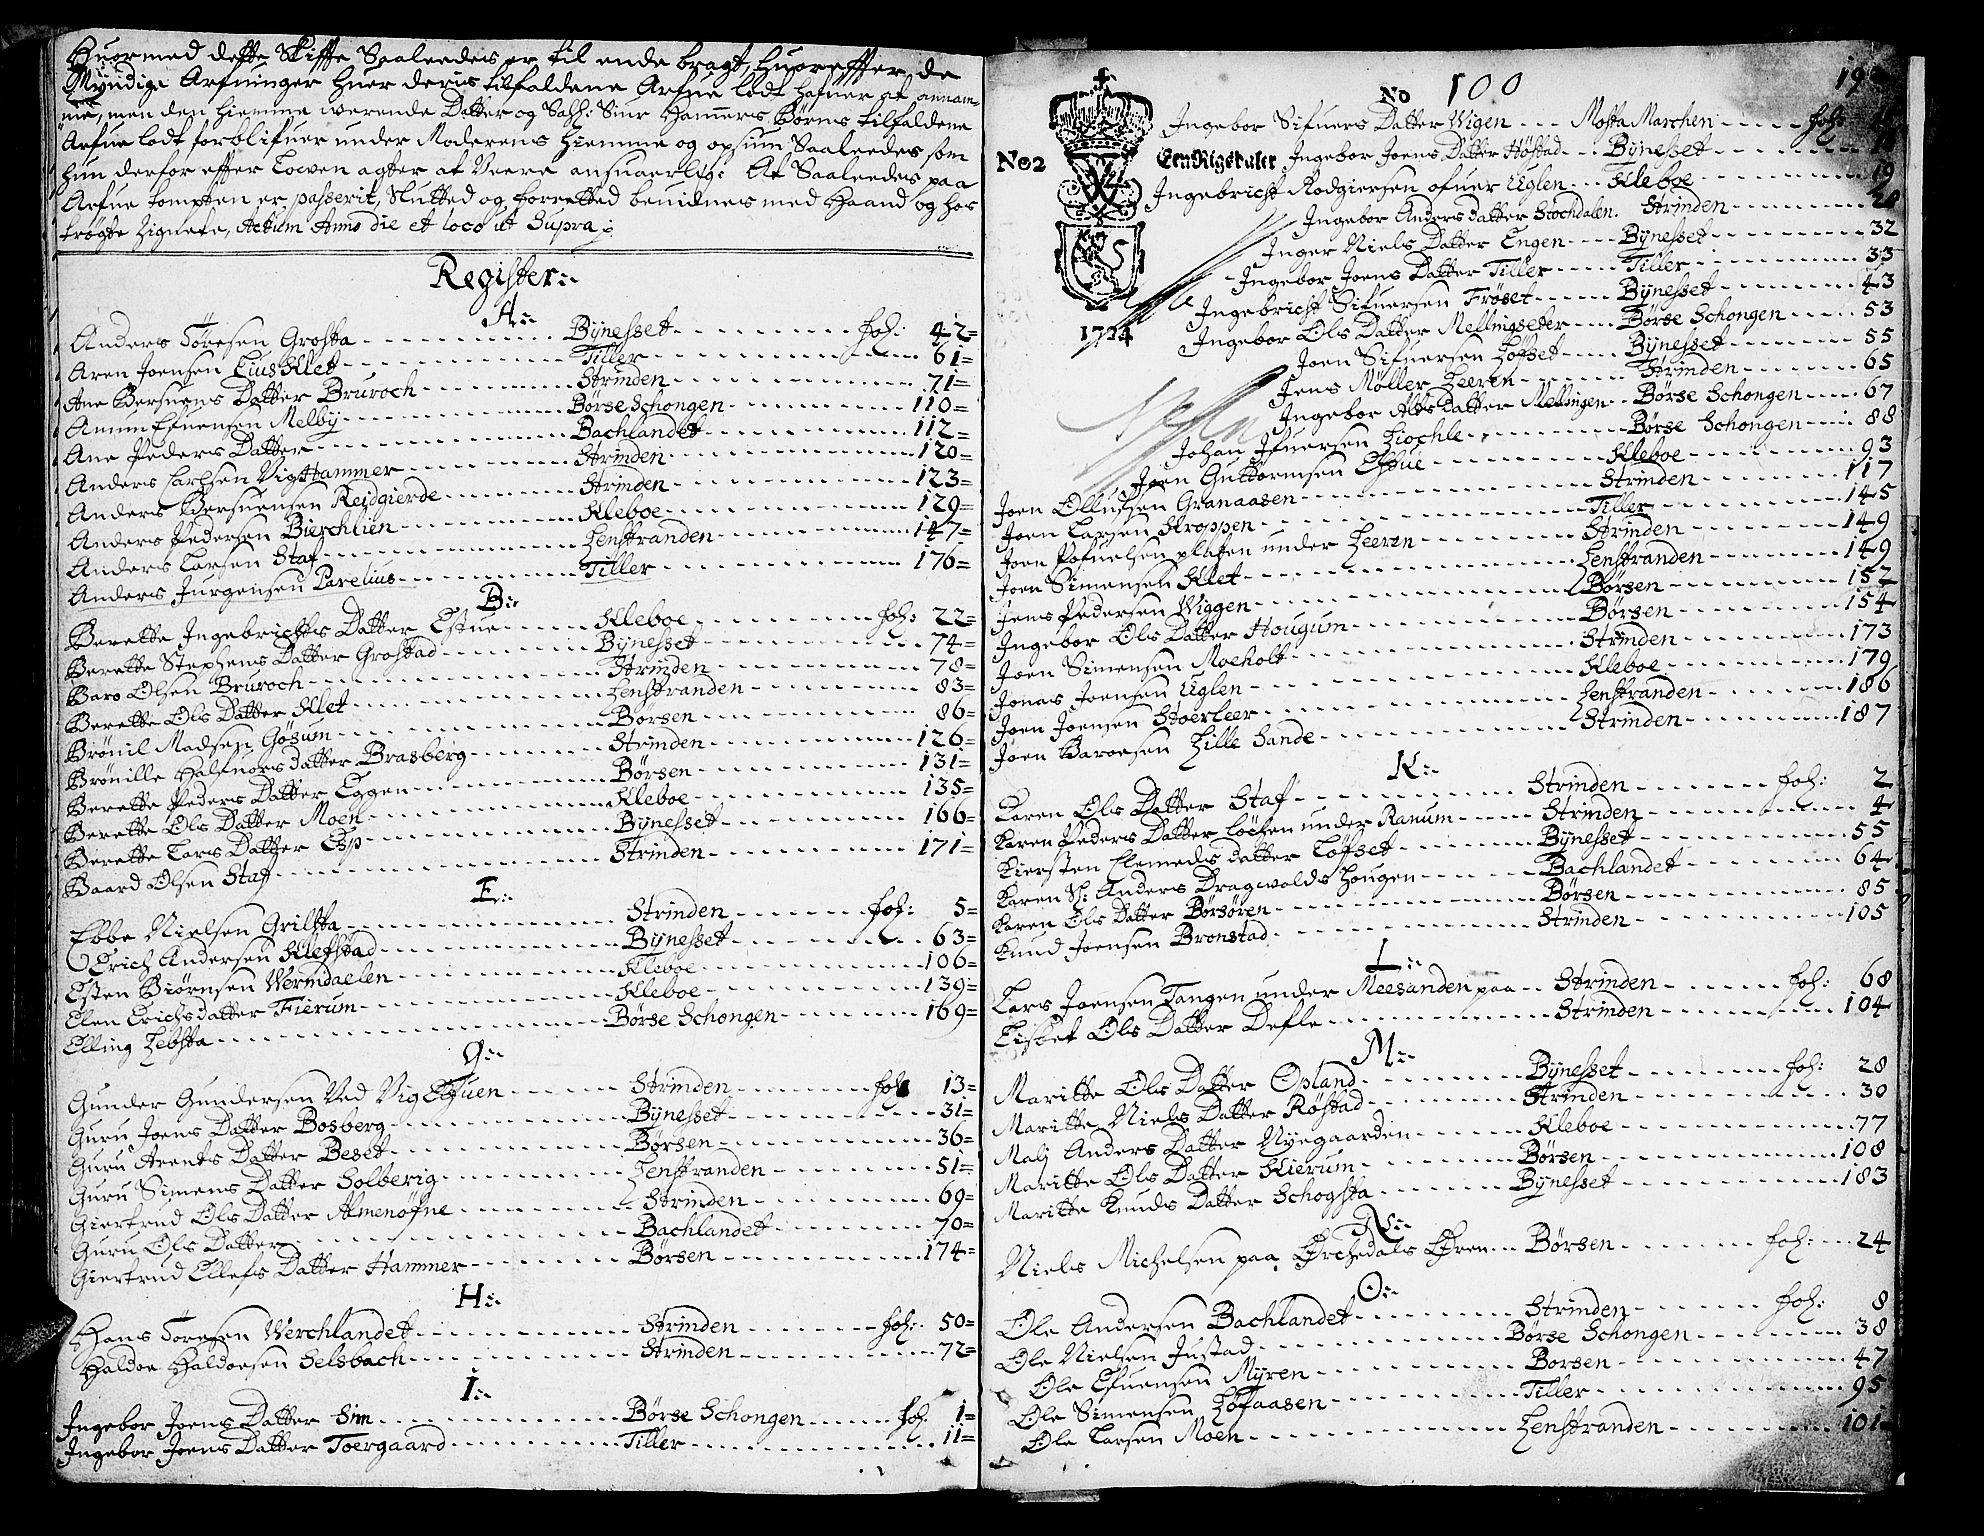 Huormed dette Skiffte Saaleedes er til ende bragt, huoreffter de
Myndige Arfvinger huer deris tilfaldene Arfue lodt hafuer at annam-
me, men den hiemme werende Datter og Sahl: Siur Hamers Børns tilfaldene
Arfue lodt forblifuer under Moderens hiemme og opsiun Saaleedes som
hun derfor effter Lowen agter at Veere ansuaerlig: At Saaleedes paa
Arfue tompten er passerit, Slutted og forretted beuidnes med Haand og hos
trøgte Zignete, Actum Anno die et loco ut Supra
Register
A
Anders Toresen Grosta Bÿnesset fol: 42
Aren Joensen Eiusklet Tiller 61
Ane Bersuens Datter Bruroch Strinden 71
Amun Efuensen Melbÿ Børse Schongen 110
Ane Peders Datter Bachlandet 112
Anders Carlsen Vigshammer Strinden 120
Anders Bersuensen Reidgierde Strinden 123
Anders Pedersen Bierchlien Kleboe 129
Anders Larsen Staf Lenstranden 147
Anders Jurgensen Parelius Tiller 176
B
Berette Ingebrichts Datter Estue Kleboe fol: 22
Berette Stephens Datter Grostad Bÿnesset 74
Baro Olsen Bruroch Strinden 78
Berette Ols Datter Klet Lenstranden 83
Brönil Madsen Gösum Børsen 86
Brönille Halfuors datter Brasberg Strinden 126
Berette Peders Datter Eggen Børsen 131
Berette Ols Datter Moen Kleboe 135
Berette Lars Datter Esp Bÿnesset 166
Baard Olsen Staf Strinden 171
E
Ebbe Nielsen Grilsta Strinden fol: 5
Erich Andersen Klefstad Bÿnesset 63
Esten Biörnsen Wermdaelen Kleboe 106
Elen Erichsdatter Fierum Kleboe 139
Elling Lebsta Børse Schongen 169
G
Gunder Gundersen Ved Vig Elfuen Strinden fol: 13
Guru Joens Datter Bosberg Bÿnesset 31
Guru Arents Datter Beset Börsen 36
Guru Simens Datter Solberig Lenstranden 51
Giertrud Ols Datter Almenöfne Strinden 69
Guru Ols Datter Bachlandet 70
Giertrud Ellefs Datter Hammer Börsen 174
H
Hans Toresen Werchlandet Strinden fol: 50
Haldoe Haldoesen Selsbach Strinden 72
I
Ingebor Joens Datter Sim Børse Schongen fol. 1
Ingebor Joens Datter Toergaard Tiller 11
No 100
No2
Een Rigsdaler
1724
Ingebor Sifuers Datter Wigen Mosta Marchen fol:
Ingebor Joens Datter Høstad Bÿnesset
Ingebricht Rodgiersen ofuer Uglen Kleboe 19
Ingebor Anders datter Stochdalen Strinden 20
Inger Niels Datter Engen Bÿnesset 32
Ingebor Joens Datter Tiller Tiller 33
Ingebricht Sifuersen Fröset Bÿnesset 43
Ingebor Ols Datter Mellingseter Börse Schongen 53
Joen Sifuersen Löfset Bÿnesset 55
Jens Möller Leeren Strinden 65
Ingebor Olfs Datter Mellingen Börse Schongen 67
Johan Ifuersen Ziochle Börse Schongen 88
Joen Guttormsen Estue Kleboe 93
Joen Ollufsen Granaasen Strinden 117
Joen Larsen Kroppen Tiller 145
Joen Pofuelsen platsen under Leeren Strinden 149
Joen Simensen Klet Lenstranden 149
Jens Pedersen Wiggen Börsen 152
Ingebor Ols Datter Hougum Börsen 154
Joen Simensen Moeholt Strinden 173
Jonas Joensen Uglen Kleboe 179
Joen Joensen Stoerleer Lenstranden 186
Joen Baroesen Lille Sande Strinden 187
K
Karen Ols Datter Staf Strinden fol: 2
Karen Peders Datter Löchen under Ranum Strinden 4
Kiersten Clemeds datter Löfset Bÿnesset 55
Karen Sl: Anders Dragwolds Hougen Bachlandet 64
Karen Ols Datter Börsören Börsen 85
Knud Joensen Bronstad Strinden 105
L
Lars Joensen Tangen under Meesanden paa Strinden fol: 68
Lisbet Ols Datter Defle Strinden 104
M
Maritte Ols Datter Opland Bÿnesset fol: 28
Maritte Niels Datter Röstad Strinden 30
Mali Anders Datter Nÿegaarden Kleboe 77
Maritte Ols Datter Kierum Börsen 108
Maritte Knuds Datter Schogsta Bÿnesset 183
N
Niels Michelsen paa Örchedals Ören Börsen fol: 24
O
Ole Andersen Bachlandet Strinden fol: 8
Ole Nielsen Justad Börse Schongen 38
Ole Efuensen Mÿren Borsen 47
Ole Simensen Löfaasen Tiller 95
Ole Larsen Moen Lenstranden 101